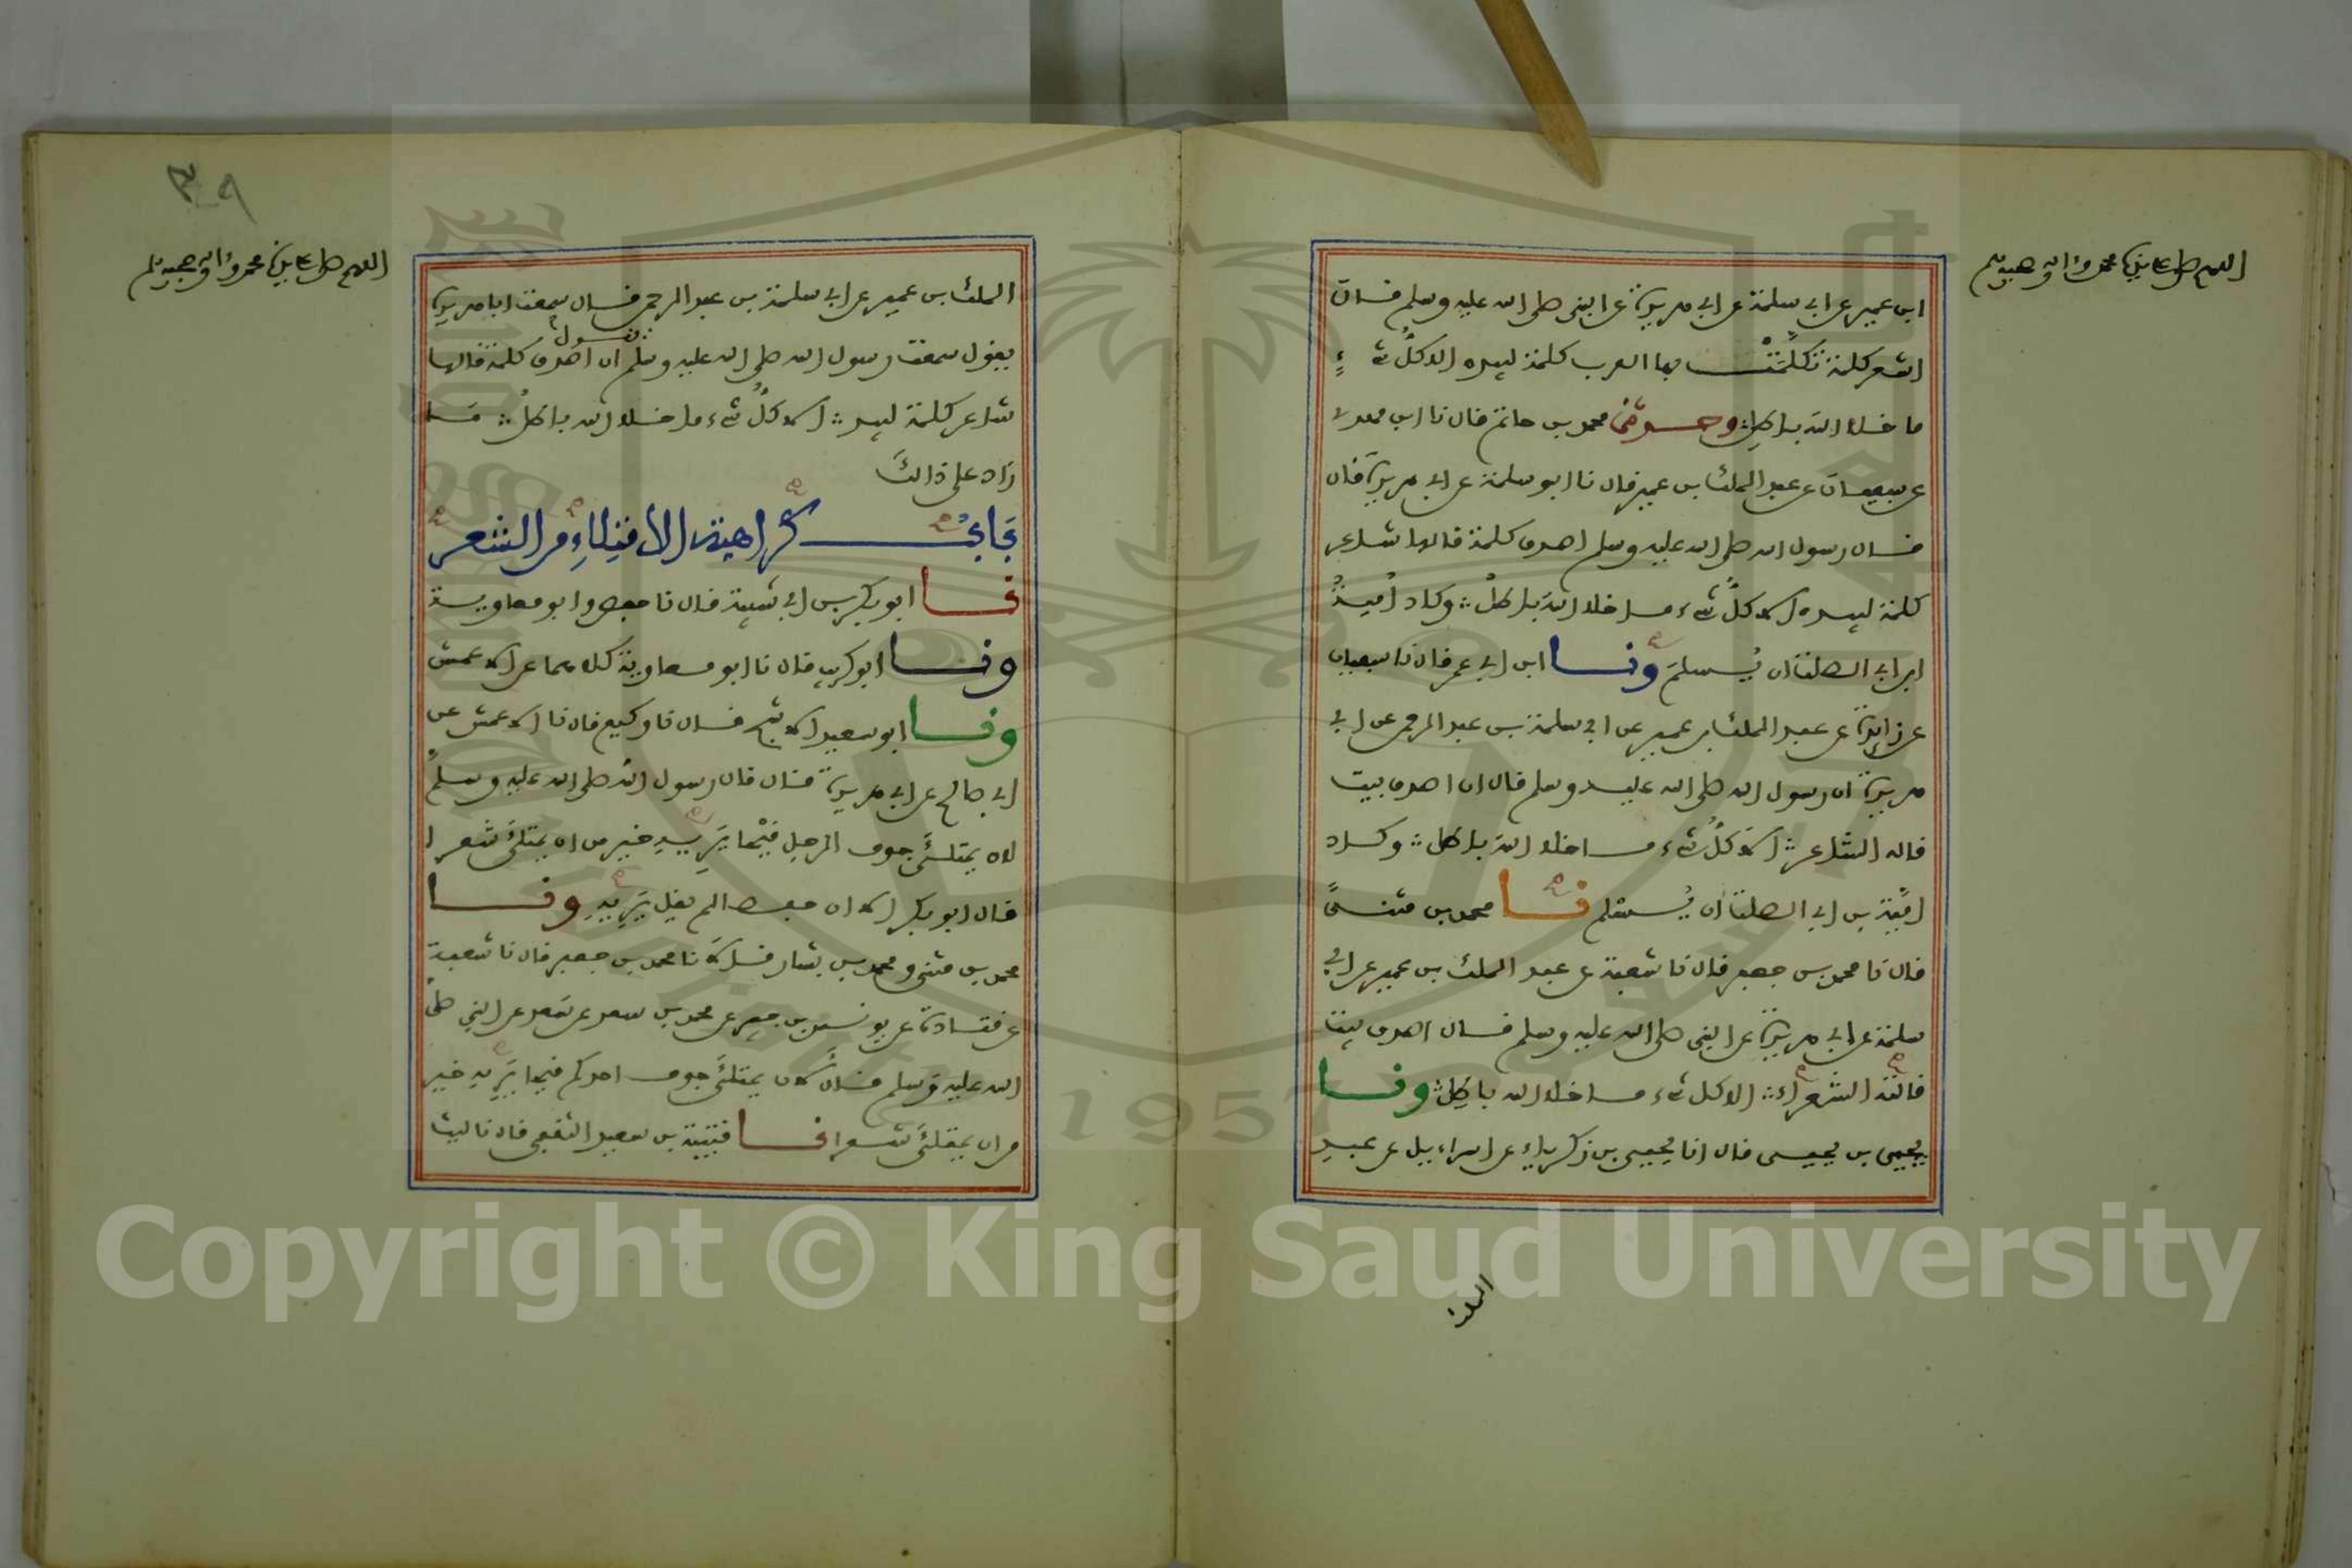 اللهم صل على سيدنا محمد وءاله وصحبه وسلم
ابن عمير عن ابي سلمة عن ابي هريرة عن النبي صلى الله عليه وسلم قال
اشعر كلمة تكلمت بها العرب كلمة لبيد ه الا كل شيء
ما خلا الله باطل وحدثني محمد بن حاتم قال نا ابن مهدي
عن سفيان عن عبد الملك بن عمير قال نا ابو سلمة عن ابي هريرة قال
قال رسول الله صلى الله عليه وسلم اصدق كلمة قالها شاعر
كلمة لبيد ه الا كل شيء ما خلا الله باطل وكاد امية
ابن ابي الصلت ان يسلم ونا ابن ابي عمر قال نا سفيان
عن زايدة عن عبد الملك بن عمير عن ابي سلمة بن عبد الرحمن عن ابي
هريرة ان رسول الله صلى الله عليه وسلم قال ان اصدق بيت
قاله الشاعر الا كل شيء ما خلا الله باطل وكاد
امية بن ابي الصلت ان يسلم نا محمد بن مثنى
قال نا محمد بن جعفر قال نا شعبة عن عبد الملك بن عمير عن ابي
سلمة عن ابي هريرة عن النبي صلى الله عليه وسلم قال اصدق بيت
قالته الشعراء الا كل شيء ما خلا الله باطل ونا
يحيى بن يحيى قال انا يحيى بن زكرياء عن اسراءيل عن عبد
الملك
٣٩
اللهم صل على سيدنا محمد وءاله وصحبه وسلم
الملك بن عمير عن ابي سلمة بن عبد الرحمن قال سمعت ابا هريرة
يقول سمعت رسول الله صلى الله عليه وسلم يقول ان اصدق كلمة قالها
شاعر كلمة لبيد الا كل شيء ما خلا الله باطل ما
زاد على ذالك
باب كراهية الامتلاء من الشعر
نا ابو بكر بن ابي شيبة قال نا حفص وابو معاوية
ونا ابو كريب قال نا ابو معاوية كلاهما عن الاعمش
ونا ابو سعيد الاشج قال نا وكيع قال نا الاعمش عن
ابي صالح عن ابي هريرة قال قال رسول الله صلى الله عليه وسلم
لان يمتلئ جوف الرجل قيحا يريه خير من ان يمتلئ شعرا
قال ابو بكر الا ان حفصا لم يقل يريه ونا
محمد بن مثنى ومحمد بن بشار قالا نا محمد بن جعفر قال نا شعبة
عن قتادة عن يونس بن جبير عن محمد بن سعد عن سعد عن النبي صلى
الله عليه وسلم قال لان يمتلئ جوف احدكم قيحا يريه خير
من ان يمتلئ شعرا نا قتيبة بن سعيد الثقفي قال نا ليث
1957
Copyright © King Saud University